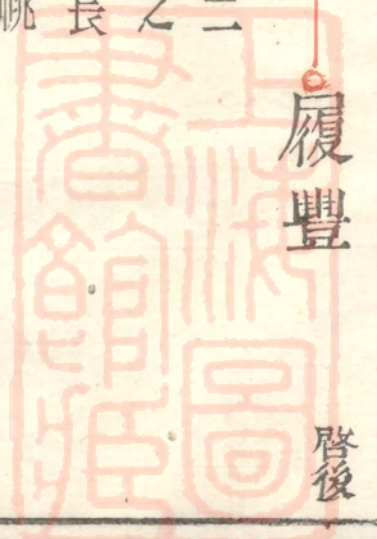 履豐
啓後
二之長祧
上海圖書館藏